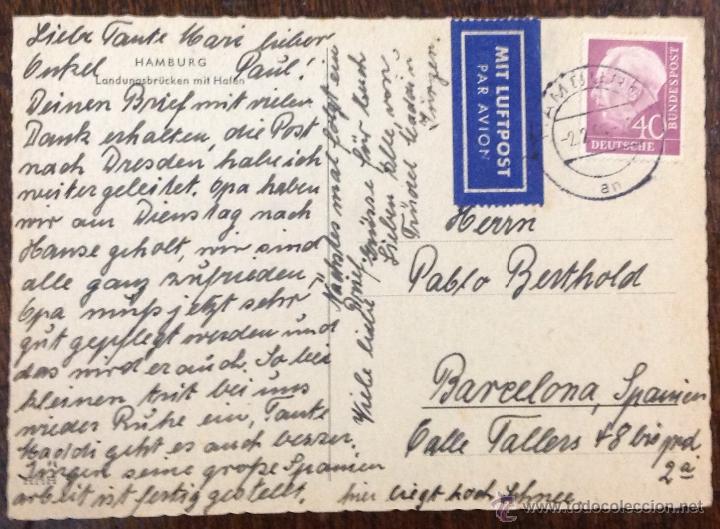 Liebe Tante Mari lieber
Onkel Paul!
HAMBURG
Landungsbrücken mit Hafen
Deinen Brief mit vielen
Dank erhalten, die Post
nach Dresden habe ich
weiter geleitet. Opa haben
wir am Dienstag nach
Hause geholt, wir sind
alle ganz zufrieden,
Opa muß jetzt sehr
gut gepflegt werden und
das wird er auch. So bei
kleinen tritt bei uns
wieder Ruhe ein, Tante
Haddi geht es auch besser.
Jürgen seine große Spanien
arbeit ist fertig gestellt.
hier liegt noch Schnee
Nächstes mal folgt ein
Brief
Viele liebe Grüsse für Euch
Lieben alle von
Trudel
Jürgen.
MIT LUFTPOST
PAR AVION
HAMBURG
an
40
DEUTSCHE
BUNDESPOST
Herrn
Pablo Berthold
Barcelona, Spanien
Calle Tallers 48 bis prd
2a
todocoleccion.net